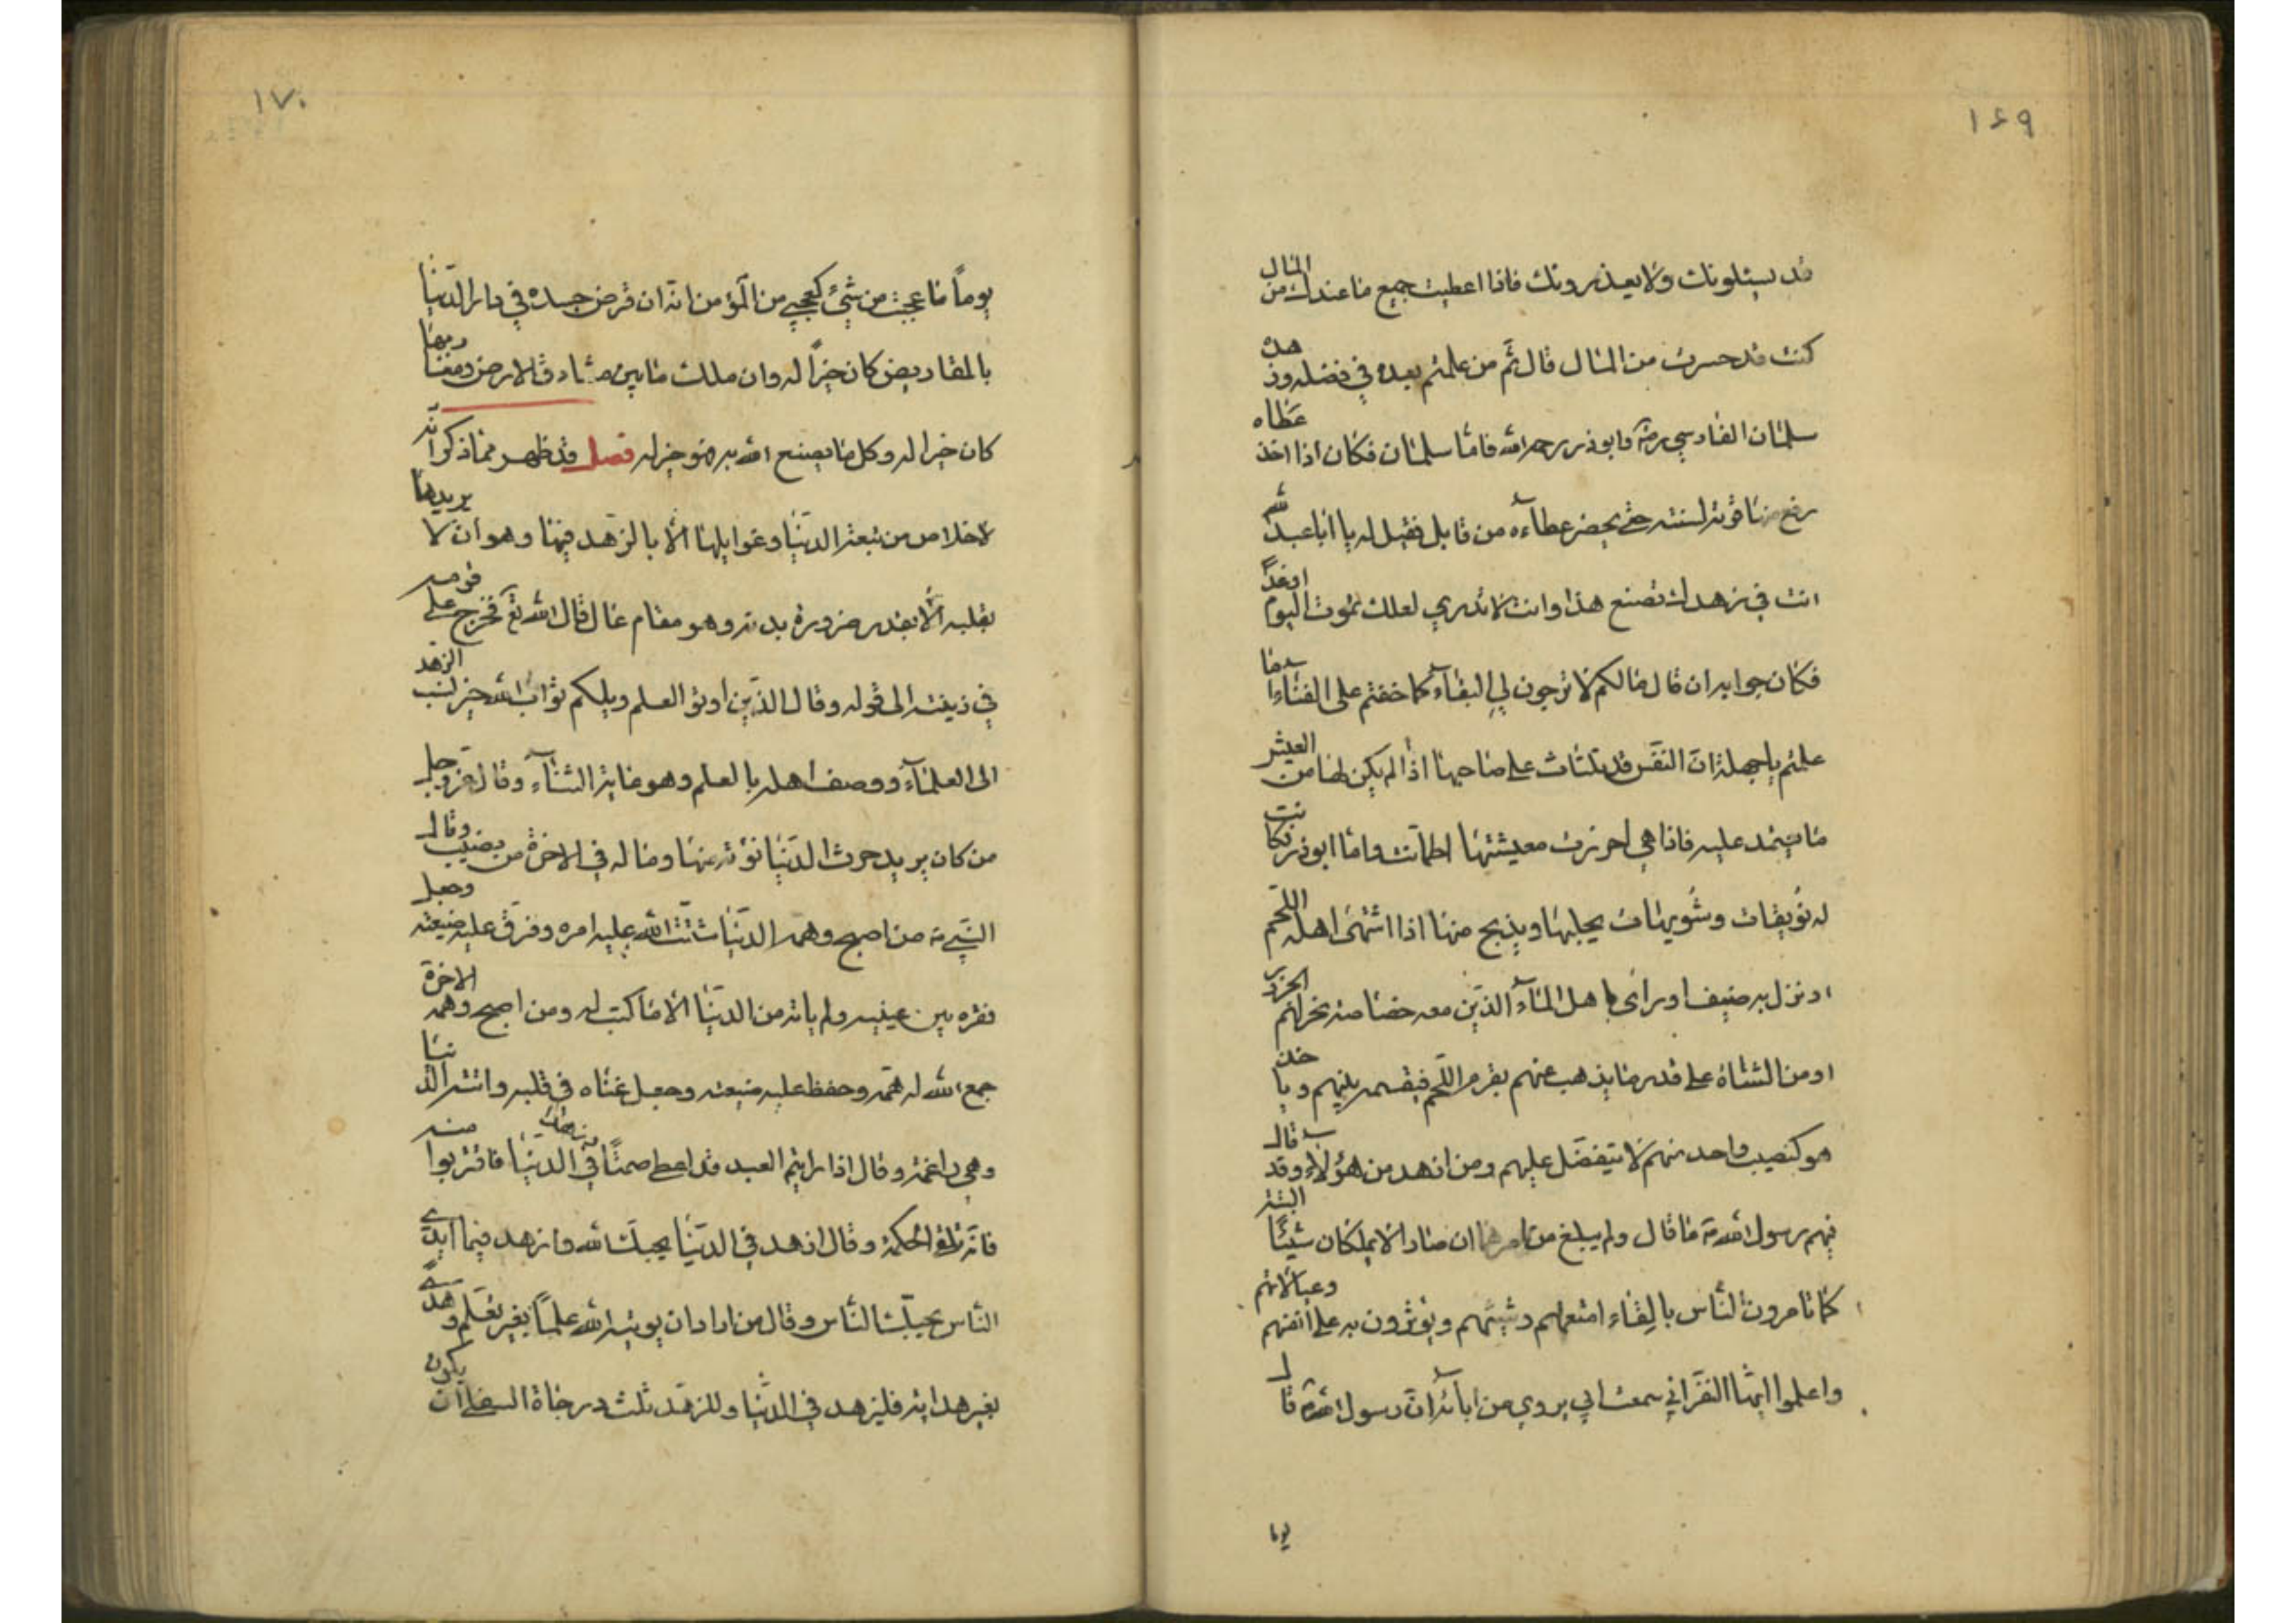 ١٦٩
قد يسئلونك ولا يعذرونك فاذا اعطيت جميع ما عندك من المال
كنت قد حسرت من المال قال ثم من علمتم بعده في فضله وزهده
سلمان الفارسي رض وابو ذر رحمه الله فاما سلمان فكان اذا اخذ عطاه
رفع منه قوته لسنته حتى يحضر عطاءه من قابل فقيل له يا ابا عبد الله
انت في زهدك تصنع هذا وانت لا تدري لعلك تموت اليوم او غداً
فكان جوابه ان قال ما لكم لا ترجون لي البقاء كما خفتم على الفناء اما
علمتم يا جهلة ان النفس قد تلتاث على صاحبها اذا لم يكن لها من العيش
ما تعتمد عليه فاذا هي احرزت معيشتها اطمأنت واما ابو ذر فكانت
له نويقات وشويهات يحلبها ويذبح منها اذا اشتهى اهله اللحم
او نزل به ضيف او راى باهل الماء الذين معه خصاصة نحر لهم الجزور
او من الشاة على قدر ما يذهب عنهم بقرم اللحم فيقسمه بينهم وياخذ
هو كنصيب واحد منهم لا يتفضل عليهم ومن ازهد من هؤلاء وقد قال
فيهم رسول الله ص ما قال ولم يبلغ من امرهما ان صارا لا يملكان شيئاً البتة
كما تامرون الناس بالقاء امتعتهم وشيئهم ويؤثرون به على انفسهم وعيالاتهم
واعلموا ايها النفر اني سمعت ابي يروي عن ابائه ان رسول الله ص قال
يوما
١٧٠
يوماً ما عجبت من شيء كعجبي من المؤمن انه ان قرض جسده في دار الدنيا
بالمقاريض كان خيراً له وان ملك ما بين مشارق الارض ومغاربها
كان خيرا له وكل ما يصنع الله به فهو خير له فصل قد ظهر مما ذكر انه
لا خلاص من تبعة الدنيا وغوايلها الا بالزهد فيها وهو ان لا يريدها
بقلبه الا بقدر ضرورة بدنه وهو مقام عال قال الله تع فخرج على قومه
في زينته الى قوله وقال الذين اوتو العلم ويلكم ثواب الله خير فنسب الزهد
الى العلماء ووصف اهله بالعلم وهو غاية الثناء وقال عز وجل
من كان يريد حرث الدنيا نؤته منها وما له في الاخرة من نصيب وقال
النبي ص من اصبح وهمه الدنيا شتت الله عليه امره وفرق عليه ضيعته وجعل
فقره بين عينيه ولم ياته من الدنيا الا ما كتب له ومن اصبح وهمه الاخرة
جمع الله له همه وحفظ عليه ضيعته وجعل غناه في قلبه واتته الدنيا
وهي راغمة وقال اذا رايتم العبد قد اعطي صمتاً وزهداً في الدنيا فاقتربوا منه
فانه يلقى الحكمة وقال ازهد في الدنيا يحبك الله وازهد فيما ايدي
الناس يحبك الناس وقال من اراد ان يؤتيه الله علماً بغير تعلم وهدى
بغير هداية فليزهد في الدنيا وللزهد ثلث درجات السفلى ان يكون